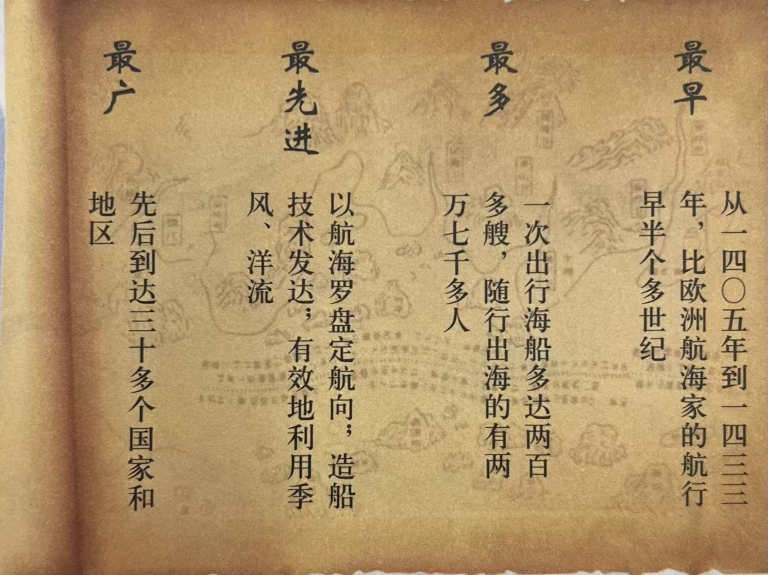 最早
从一四〇五年到一四三三
年，比欧洲航海家的航行
早半个多世纪
最多
一次出行海船多达两百
多艘，随行出海的有两
万七千多人
最先进
以航海罗盘定航向；造船
技术发达；有效地利用季
风、洋流
最广
先后到达三十多个国家和
地区